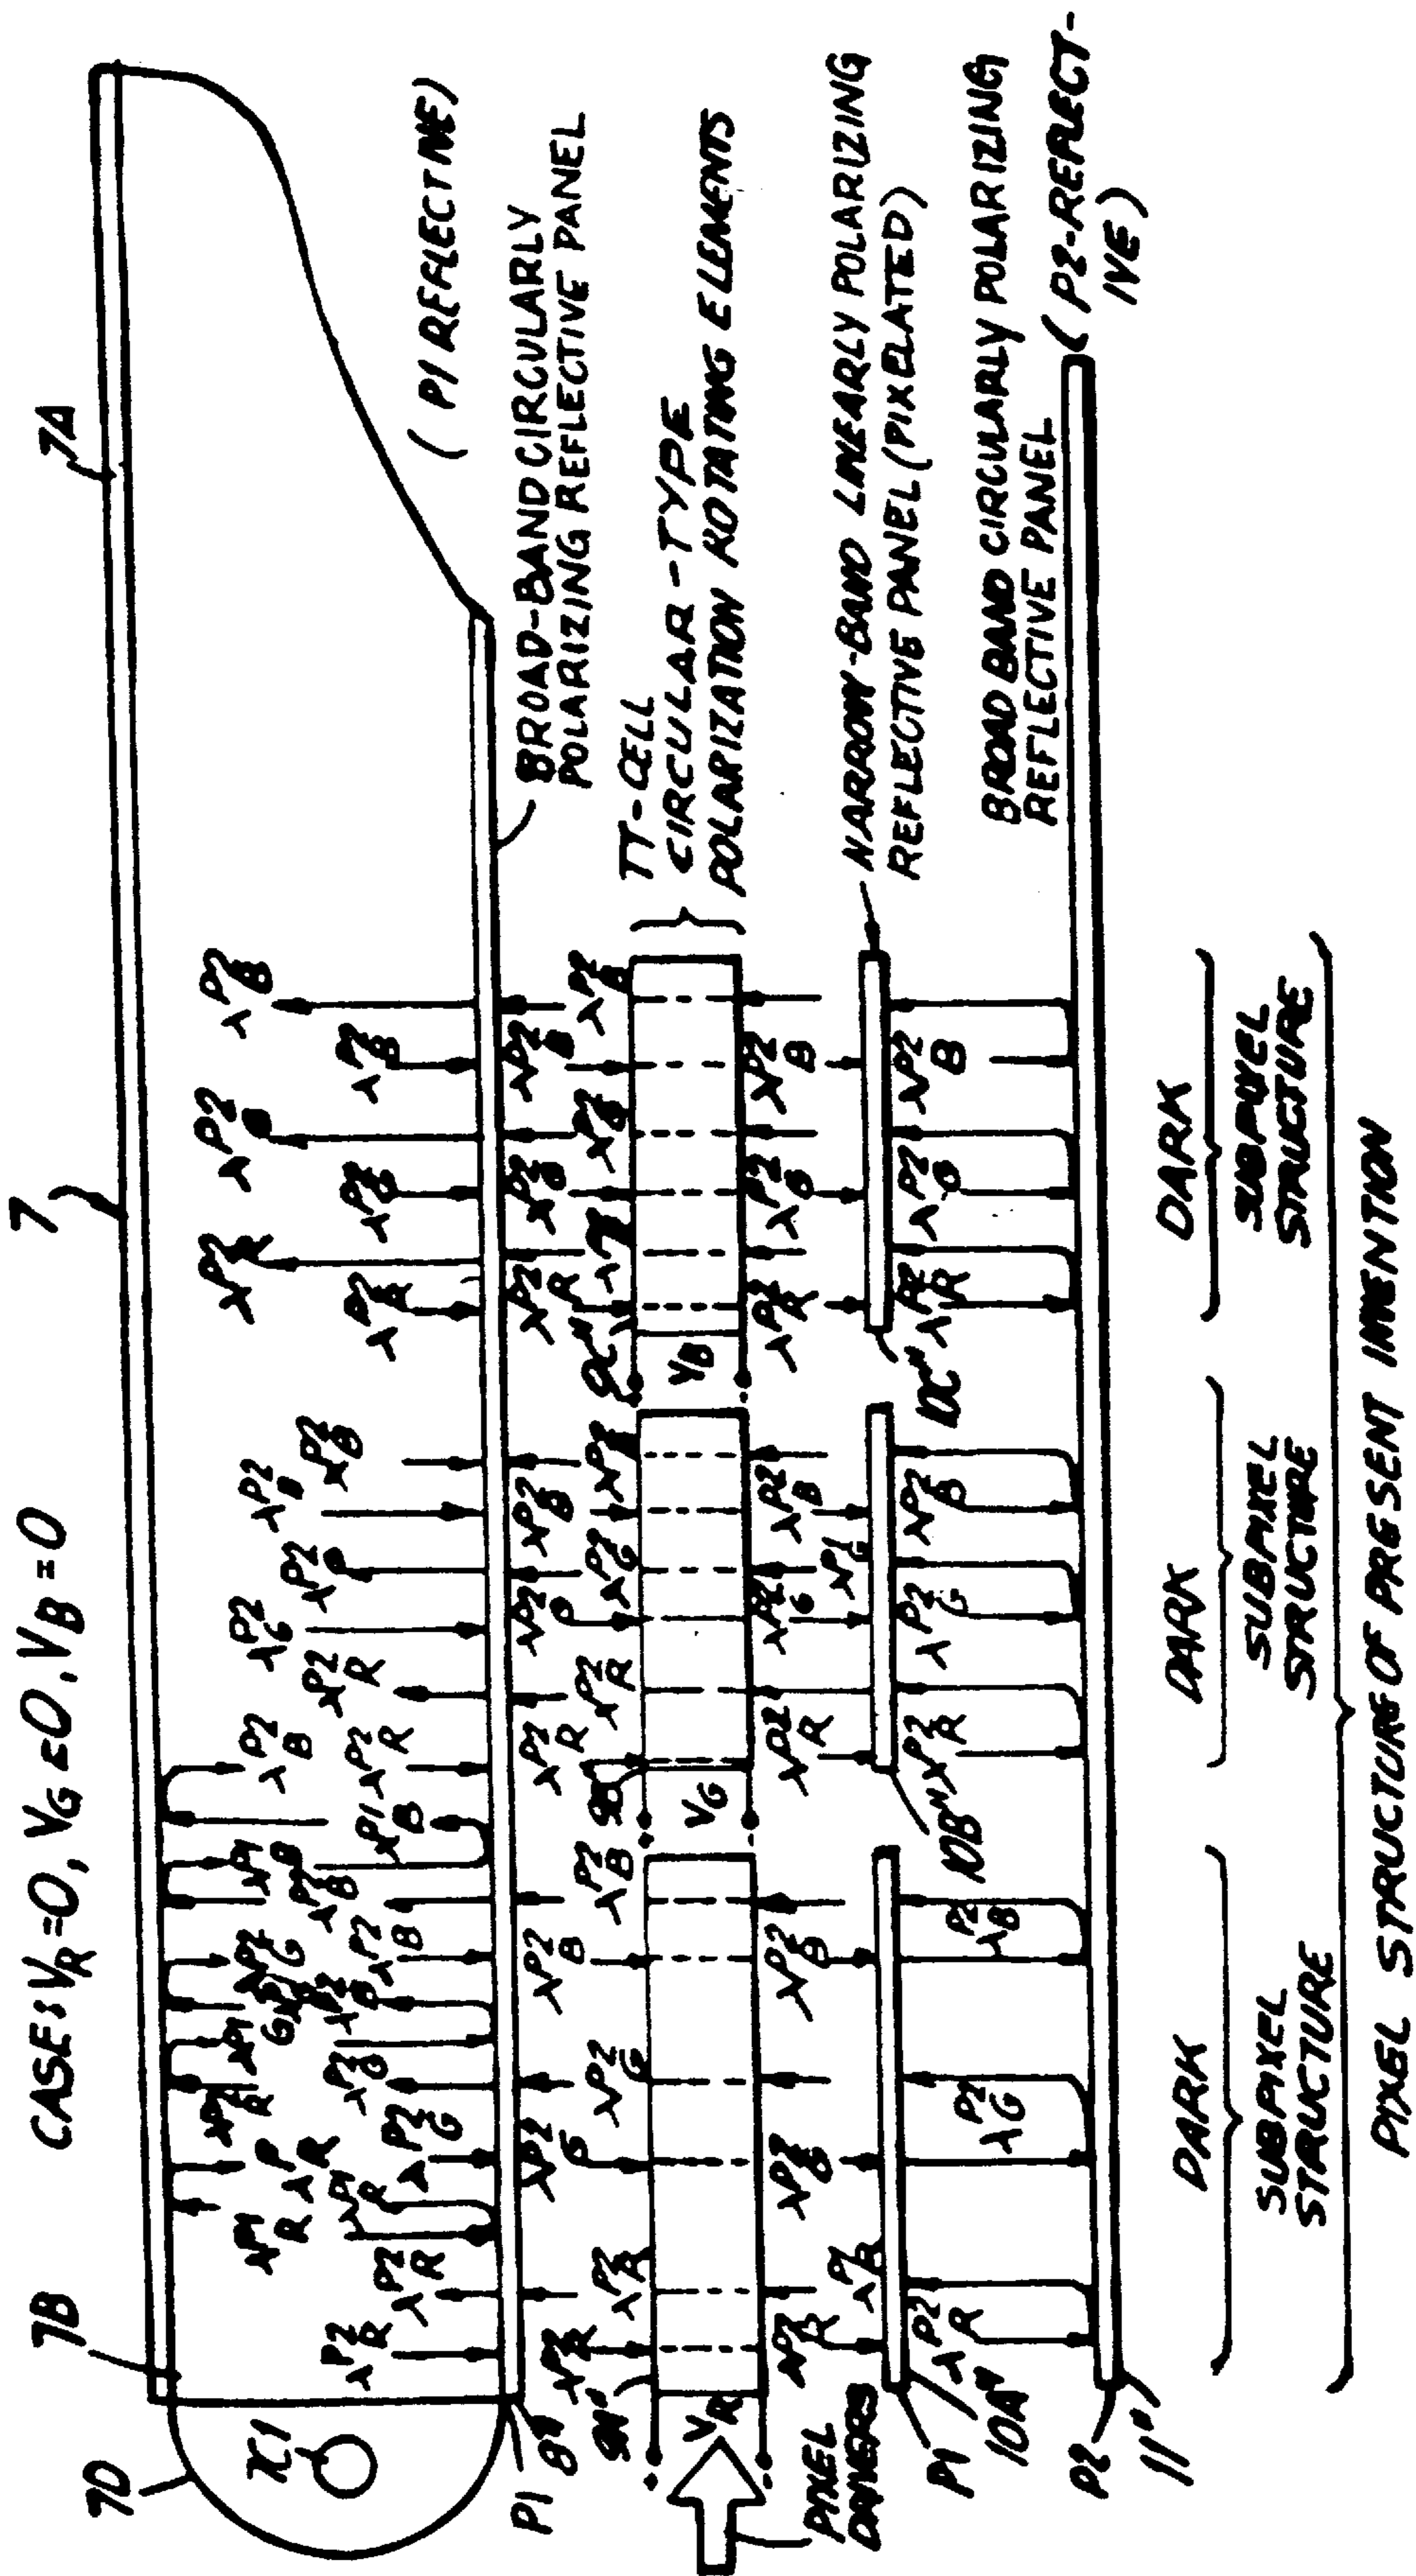 CASE: V_R=0, V_G=0, V_B=0
7
7A
7B
7D
K1
(P1 REFLECTIVE)
BROAD-BAND CIRCULARLY
POLARIZING REFLECTIVE PANEL
Π-CELL
CIRCULAR-TYPE
POLARIZATION ROTATING ELEMENTS
NARROW-BAND LINEARLY POLARIZING
REFLECTIVE PANEL (PIXELATED)
BROAD BAND CIRCULARLY POLARIZING
REFLECTIVE PANEL
(P2-REFLECT-
IVE)
λ^P2_R
λ^P2_R
λ^P1_R
λ^P1_R
λ^P2_G
λ^P2_B
λ^P1_B
λ^P2_B
λ^P2_R
λ^P2_R
λ^P2_G
λ^P2_B
λ^P2_B
λ^P2_R
λ^P2_B
λ^P2_B
P1
8"
V_R
λ^P2_R
λ^P2_G
λ^P2_B
λ^P2_B
V_G
λ^P2_R
λ^P2_R
λ^P2_G
λ^P2_B
9C"
V_B
λ^P2_R
λ^P2_B
λ^P2_B
PIXEL
DRIVERS
λ^P1_R
λ^P2_B
λ^P2_R
λ^P2_G
λ^P1_G
λ^P2_B
λ^P2_R
λ^P2_G
λ^P2_B
P1
10A"
λ^P2_R
λ^P2_G
λ^P2_B
10B"
λ^P2_R
λ^P2_G
λ^P2_B
10C"
λ^P2_R
λ^P2_G
λ^P2_B
P2
11"
DARK
SUBPIXEL
STRUCTURE
DARK
SUBPIXEL
STRUCTURE
DARK
SUBPIXEL
STRUCTURE
PIXEL STRUCTURE OF PRESENT INVENTION